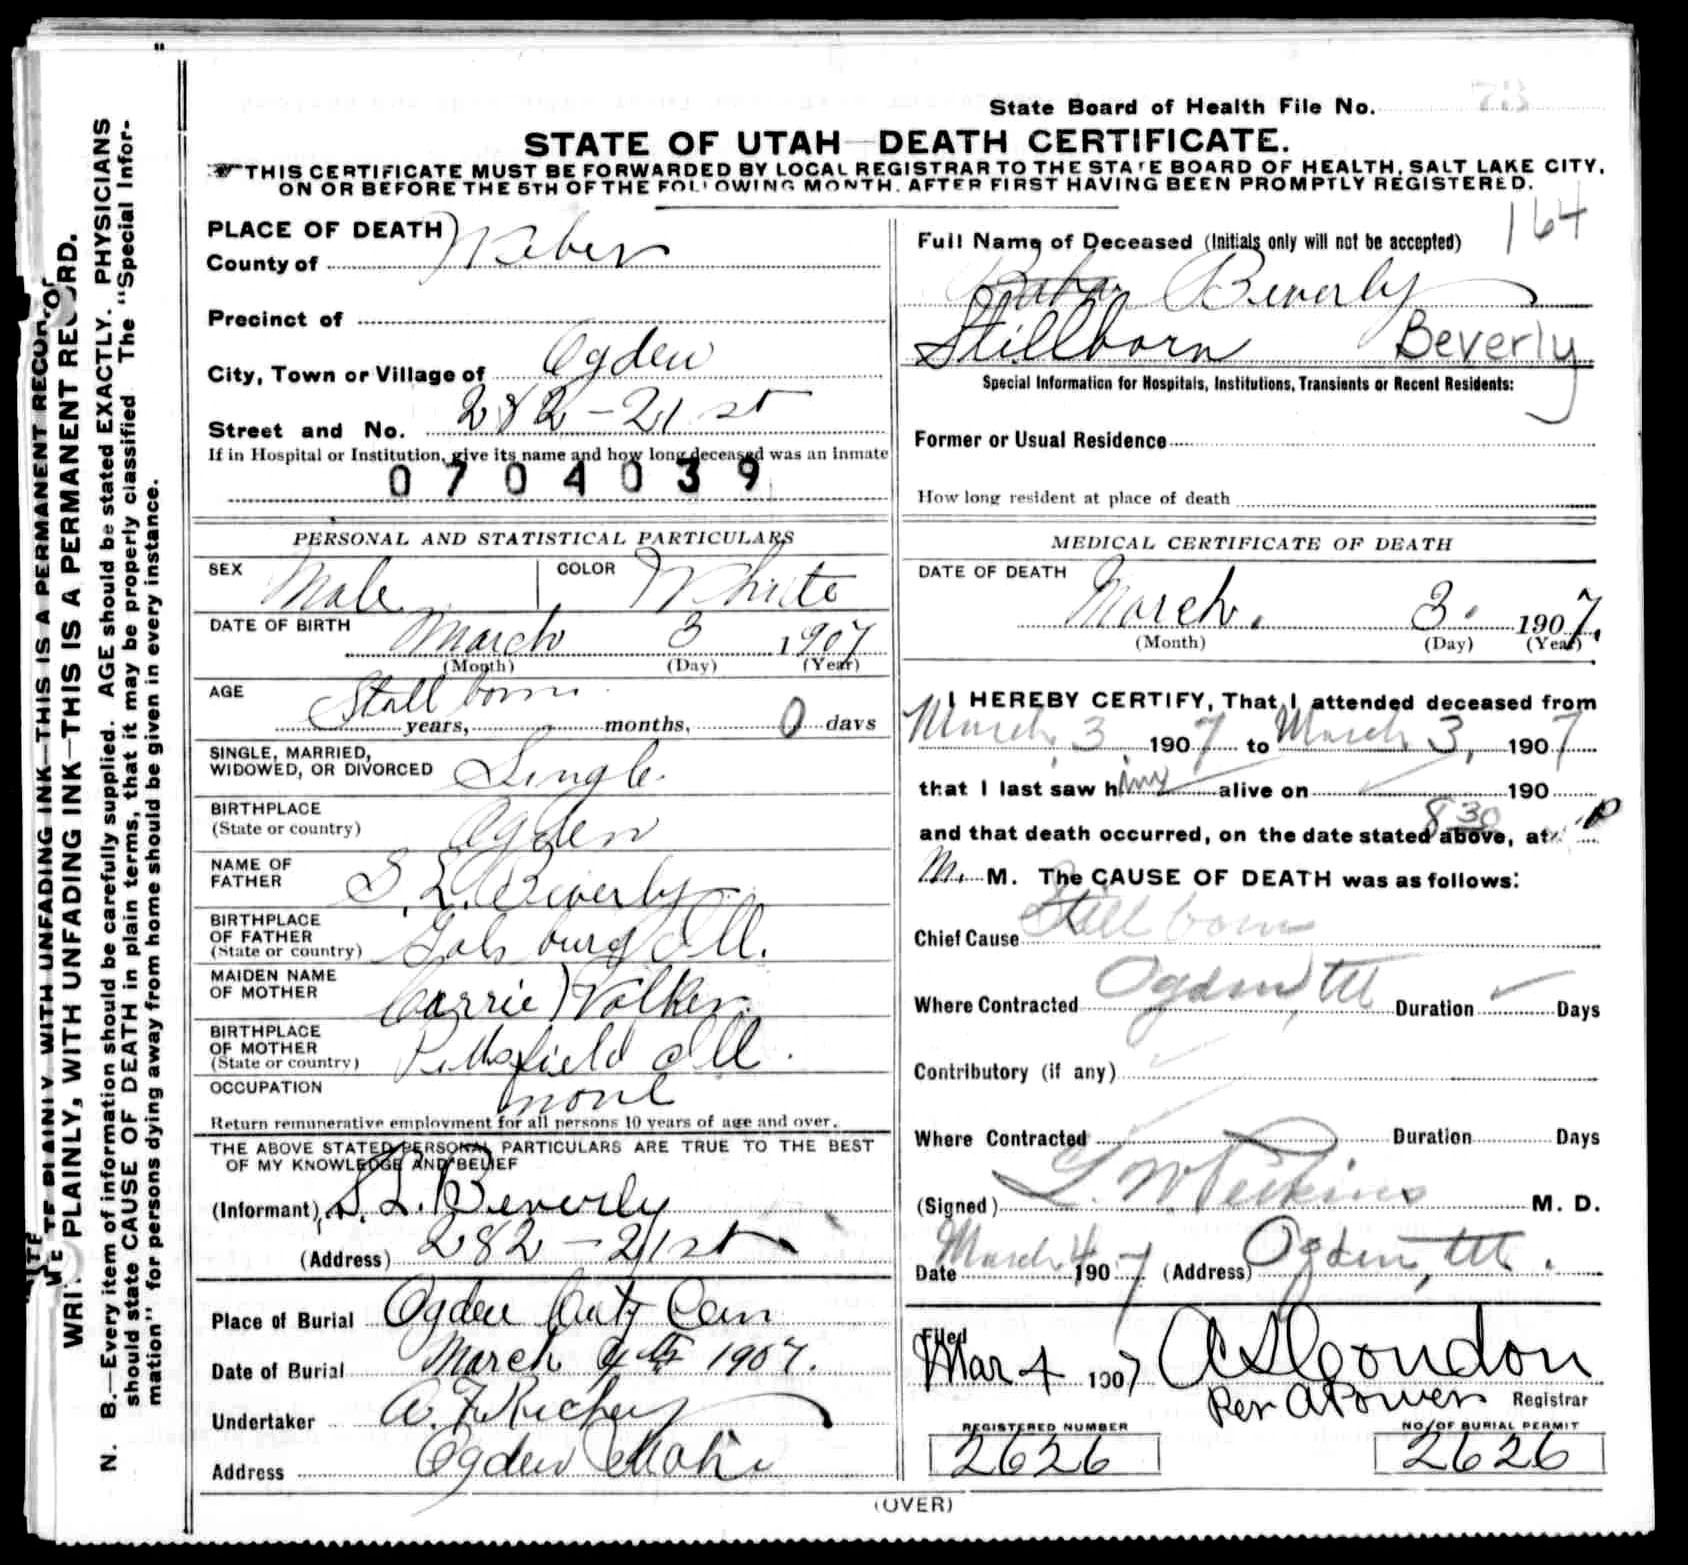 State Board of Health File No. 73
STATE OF UTAH—DEATH CERTIFICATE.
THIS CERTIFICATE MUST BE FORWARDED BY LOCAL REGISTRAR TO THE STATE BOARD OF HEALTH, SALT LAKE CITY,
ON OR BEFORE THE 5TH OF THE FOLLOWING MONTH, AFTER FIRST HAVING BEEN PROMPTLY REGISTERED.
WRITE PLAINLY, WITH UNFADING INK—THIS IS A PERMANENT RECORD.
WRITE PLAINLY, WITH UNFADING INK—THIS IS A PERMANENT RECORD.
N. B.—Every item of information should be carefully supplied. AGE should be stated EXACTLY. PHYSICIANS
should state CAUSE OF DEATH in plain terms, that it may be properly classified. The "Special Infor-
mation" for persons dying away from home should be given in every instance.
PLACE OF DEATH
County of Weber
Precinct of
City, Town or Village of Ogden
Street and No. 282 - 21st
If in Hospital or Institution, give its name and how long deceased was an inmate
0704039
PERSONAL AND STATISTICAL PARTICULARS
SEX Male COLOR White
DATE OF BIRTH March 3 1907
(Month) (Day) (Year)
AGE Still born
years, months, 0 days
SINGLE, MARRIED,
WIDOWED, OR DIVORCED Single
BIRTHPLACE
(State or country) Ogden
NAME OF
FATHER S. L. Beverly
BIRTHPLACE
OF FATHER
(State or country) Galsburg Ill.
MAIDEN NAME
OF MOTHER Carrie Walker
BIRTHPLACE
OF MOTHER
(State or country) Pittsfield Ill.
OCCUPATION none
Return remunerative employment for all persons 10 years of age and over.
THE ABOVE STATED PERSONAL PARTICULARS ARE TRUE TO THE BEST
OF MY KNOWLEDGE AND BELIEF
(Informant) S. L. Beverly
(Address) 282 - 21st
Place of Burial Ogden City Cem
Date of Burial March 4th 1907.
Undertaker A. F. Richey
Address Ogden Utah
164
Full Name of Deceased (Initials only will not be accepted)
Baby Beverly
Stillborn Beverly
Special Information for Hospitals, Institutions, Transients or Recent Residents:
Former or Usual Residence
How long resident at place of death
MEDICAL CERTIFICATE OF DEATH
DATE OF DEATH March. 3. 1907.
(Month) (Day) (Year)
I HEREBY CERTIFY, That I attended deceased from
March 3 1907 to March 3, 1907
that I last saw him alive on 190
and that death occurred, on the date stated above, at 8 30 P
M. M. The CAUSE OF DEATH was as follows:
Chief Cause Still born
Where Contracted Ogden, Ut Duration Days
Contributory (if any)
Where Contracted Duration Days
(Signed) L. W Perkins M. D.
Date March 4 1907 (Address) Ogden, Ut.
Filed
Mar 4 1907 A S Condon
Per A Power Registrar
REGISTERED NUMBER NO. OF BURIAL PERMIT
2626 2626
(OVER)